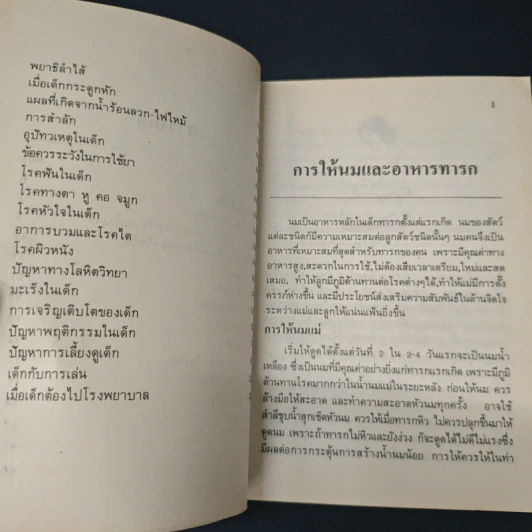 พยาธิลำไส้
เมื่อเด็กกระดูกหัก
แผลที่เกิดจากน้ำร้อนลวก-ไฟไหม้
การสำลัก
อุบัทวเหตุในเด็ก
ข้อควรระวังในการใช้ยา
โรคฟันในเด็ก
โรคทางตา หู คอ จมูก
โรคหัวใจในเด็ก
อาการบวมและโรคไต
โรคผิวหนัง
ปัญหาทางโลหิตวิทยา
มะเร็งในเด็ก
การเจริญเติบโตของเด็ก
ปัญหาพฤติกรรมในเด็ก
ปัญหาการเลี้ยงดูเด็ก
เด็กกับการเล่น
เมื่อเด็กต้องไปโรงพยาบาล
1
การให้นมและอาหารทารก
นมเป็นอาหารหลักในเด็กทารกตั้งแต่แรกเกิด นมของสัตว์
แต่ละชนิดก็มีความเหมาะสมต่อลูกสัตว์ชนิดนั้นๆ นมคนจึงเป็น
อาหารที่เหมาะที่สุดสำหรับทารกของคน เพราะมีคุณค่าทาง
อาหารสูง,สะดวกในการใช้,ไม่ต้องเสียเวลาเตรียม,ใหม่และสด
เสมอ, ทำให้ลูกมีภูมิต้านทานต่อโรคต่างๆได้,ทำให้แม่มีการตั้ง
ครรภ์ห่างขึ้น และมีประโยชน์ส่งเสริมความสัมพันธ์ในด้านจิตใจ
ระหว่างแม่และลูกให้แน่นแฟ้นยิ่งขึ้น
การให้นมแม่
เริ่มให้ดูดได้ตั้งแต่วันที่ 2 ใน 2-4 วันแรกจะเป็นนมน้ำ
เหลือง ซึ่งเป็นนมที่มีคุณค่าอย่างยิ่งแก่ทารกแรกเกิด เพราะมีภูมิ
ต้านทานโรคมากกว่าในน้ำนมแม่ในระยะหลัง ก่อนให้นม ควร
ล้างมือให้สะอาด และทำความสะอาดหัวนมทุกครั้ง อาจใช้
สำลีชุบน้ำสุกเช็ดหัวนม ควรให้เมื่อทารกหิว ไม่ควรปลุกขึ้นมาให้
ดูดนม เพราะถ้าทารกไม่หิวและยังง่วง ก็จะดูดได้ไม่ดีไม่แรงซึ่ง
มีผลต่อการกระตุ้นการสร้างน้ำนมน้อย การให้ควรให้ในท่า